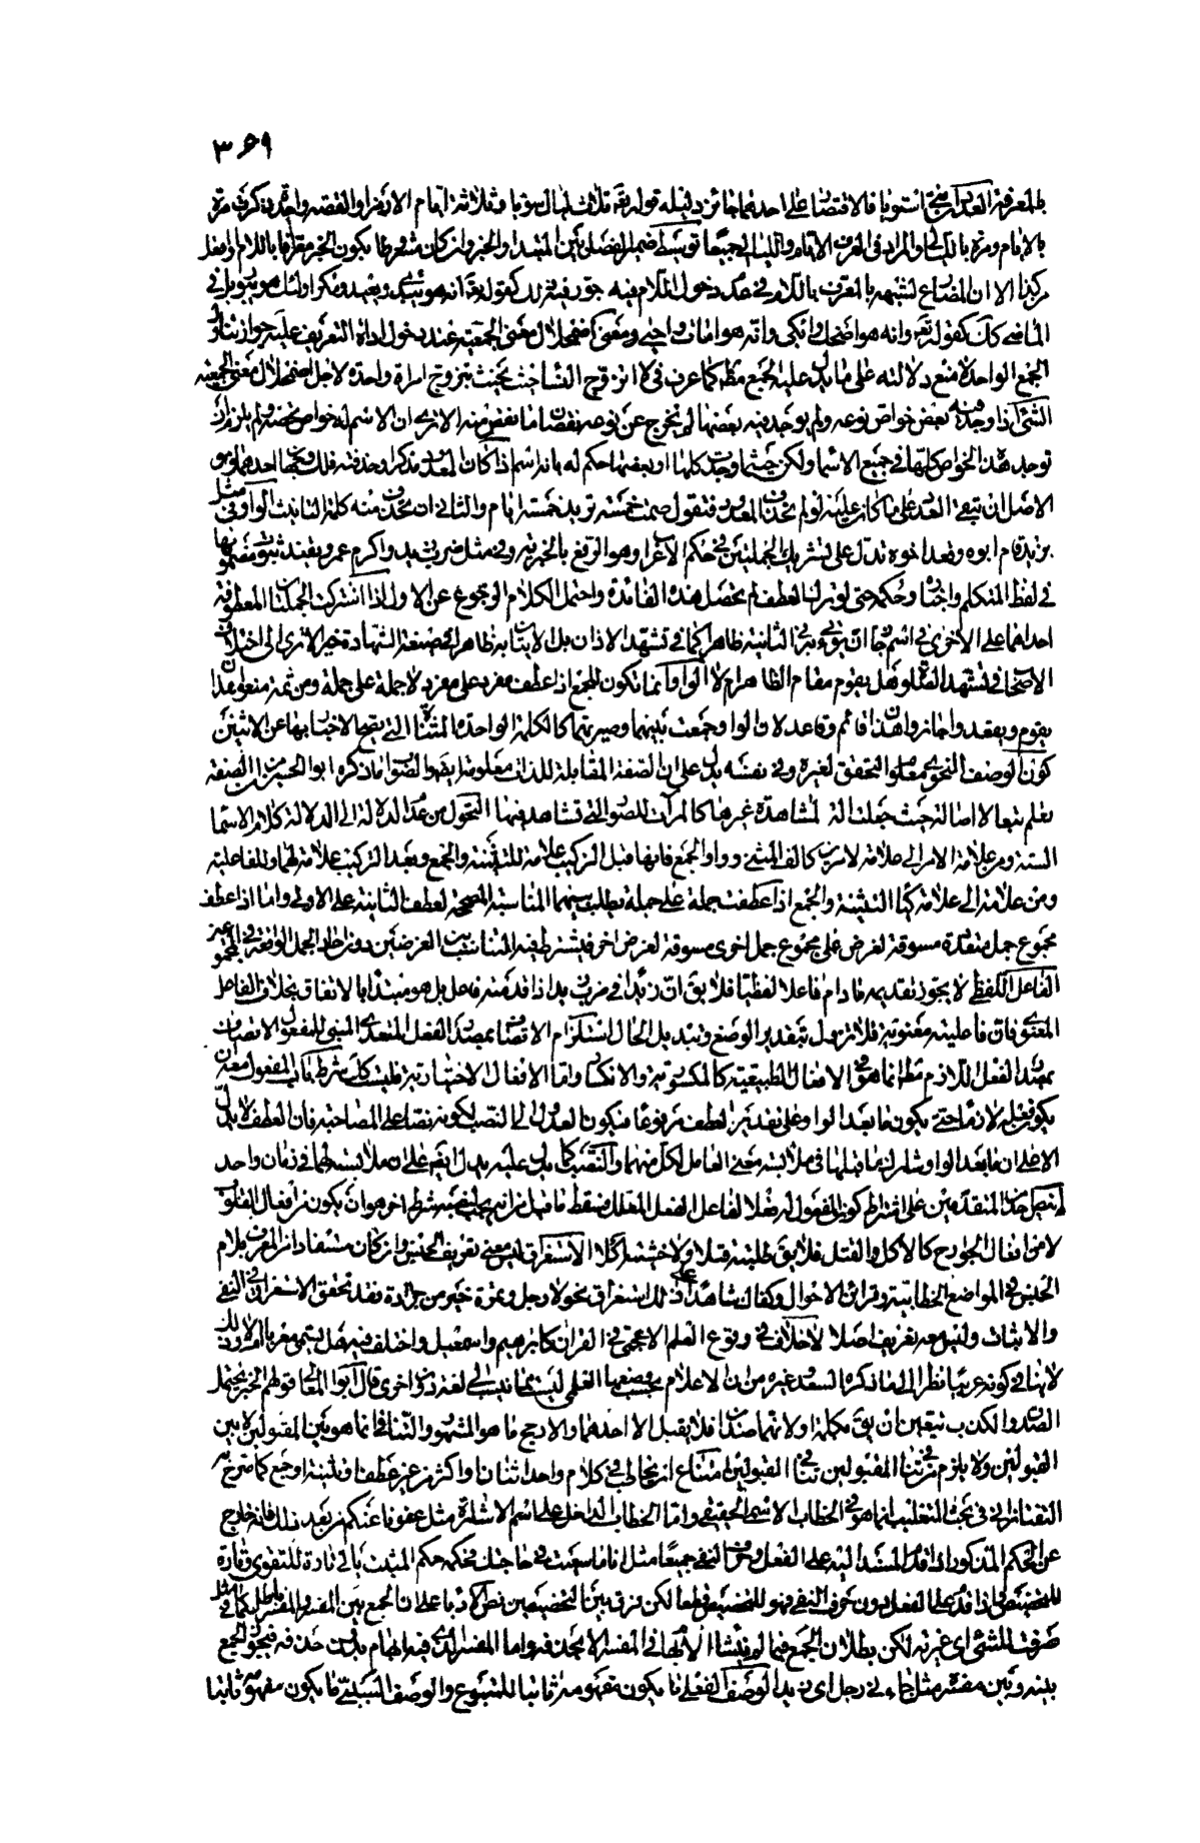 ٣٦٩
فالاقتصار على احدهما جائز دليله قوله تعالى ثلاث ليال سويا وثلاثة ايام الا رمزا والقصة واحدة ذكرت مرة
بالايام ومرة بالليالي والمراد في العرف الايام والليالي جميعا توسط ضمير الفصل بين المبتدا والخبر وان كان مشروطا بكون الخبر معرفا باللام او افعل
من كذا الا ان المضارع لشبهه بالمعرف باللام في عدم دخول اللام فيه جوز فيه ذلك كقوله تعالى انه هو يبدئ ويعيد ومكر اولئك هو يبور
الماضي كذلك كقوله تعالى وانه هو اضحك وابكى وانه هو امات واحيى ومعنى اضمحلال معنى الجمعية عند دخول اداة التعريف عليه جواز تناول
الجمع الواحد لا منع دلالته على ما يدل عليه الجمع مطلقا كما عرف في لا اتزوج النساء حيث يحنث بتزوج امراة واحدة لاجل اضمحلال معنى الجمعية
الشئ اذا وجد فيه بعض خواص نوعه ولم يوجد فيه بعضها لم يخرج عن نوعه نقصان ما نقص منه الا ترى ان الاسم له خواص تخصه ولم يلزم ان
توجد هذه الخواص كلها في جميع الاسماء ولكن حيثما وجدت كلها او بعضها حكم له بانه اسم اذا كان المعدود مذكرا وحذفته فلك وجهان احدهما وهو
الاصل ان تبقي العدد على ما كان عليه لو لم تحذف المعدود فتقول صمت خمسة تريد خمسة ايام والثاني ان تحذف منه كلمة التانيث الواو في مثل
زيد قام ابوه وقعد اخوه تدل على تشريك الجملتين في حكم الاعراب وهو الرفع بالخبرية وفي مثل ضرب زيد واكرم عمرو يفيد ثبوت مضمونها
في لفظ المتكلم واخباره وحكمه حتى لو ترك العطف لم يحصل هذه الفائدة واحتمل الكلام الرجوع عن الاول اذا اشتركت الجملتان المعطوفة
احداهما على الاخرى في اسم جاز ان يؤتى به في الثانية ظاهرا كما في تشهد الاذان بل الاتيان به ظاهرا في صيغة الشهادة خير الا ترى الى اختلاف
الاصحاب في تشهد الصلوة هل يقوم مقام الظاهر ام لا الواو انما تكون للجمع اذا عطف مفرد على مفرد لا جملة على جملة ومن ثمة منعوا هذان
يقوم ويقعد واجازوا هذان قائم وقاعد لان الواو جمعت بينهما وصيرتهما كالكلمة الواحدة المثناة التي يصح الاخبار بها عن الاثنين
كون الوصف النحوي معلوم التحقق لغيره وفي نفسه يدل على ان الصفة المقابلة للذات معلومة ايضا والصواب ما ذكره ابو الحسين من ان الصفة
تعلم تبعا لا اصالة حيث جعلت الة لمشاهدة غيرها كالمرآة للصور التي تشاهد فيها التحول من عدم الدلالة الى الدلالة كلام الاسماء
الستة ومن علامة الامر الى علامة لامرين كالف المثنى وواو الجمع فانهما قبل التركيب علامة للتثنية والجمع وبعد التركيب علامة لهما وللفاعلية
ومن علامة الى علامة كياء التثنية والجمع اذا عطفت جملة على جملة يطلب بينهما المناسبة المصححة لعطف الثانية على الاولى واما اذا عطف
مجموع جمل متعددة مسوقة لغرض على مجموع جمل اخرى مسوقة لغرض اخر فيشترط فيه التناسب بين الغرضين دون احاد الجمل الواقعة في المجموعين
الفاعل اللفظي لا يجوز تقديمه ما دام فاعلا لفظيا فلا يقال ان زيدا في ضرب زيد اذا قدمته فاعل بل هو مبتدا بالاتفاق بخلاف الفاعل
المعنوي فان فاعليته معنوية فلا تزول بتقدير الوضع وتبديل الحال استلزام الاتصاف بمصدر الفعل المتعدي المبني للمفعول الاتصاف
بمصدر الفعل اللازم مطلقا انما هو في الافعال الطبيعية كالمكسورية والانكسار واما الافعال الاختيارية فليست كذلك شرط باب المفعول معه ان
يكون فعله لازما حتى يكون ما بعد الواو على تقدير العطف مرفوعا فيكون العدول الى النصب لكونه نصا على المصاحبة فان العطف لا يدل
الا على ان ما بعد الواو شارك ما قبلها في ملابسة معنى العامل لكل منهما والنصب كما يدل عليه يدل ايضا على ان ملابسته لهما في زمان واحد
لم ينص احد المتقدمين على اشتراط كون المفعول له فعلا لفاعل الفعل المعلل فسقط ما قيل انه يجب فيه شرط اخر هو ان يكون من افعال القلوب
لا من افعال الجوارح كالاكل والقتل فلا يقال طلبته قتلا ولا خشيته اكلا الاستغراق ليس معنى تعريف الجنس وان كان مستفادا من المعرف بلام
الجنس في المواضع الخطابية وقرائن الاحوال وكفاك شاهدا على ذلك استغراق نحو لا رجل وتمرة خير من جرادة فقد تحقق الاستغراق في النفي
والاثبات وليس معه تعريف اصلا لا خلاف في وقوع العلم الاعجمي في القران كابراهيم واسمعيل واختلف فيه هل يسمى معربا ام لا وذلك
لا ينافي كونه عربيا نظرا الى ما ذكره السعد وغيره من ان الاعلام بحسب وضعها العلمي ليست مما ينسب الى لغة دون اخرى قال ابو المعالي قولهم الخبر يحتمل
الصدق والكذب يتعين ان يقال بكلمة او لانهما ضدان فلا يقبل الا احدهما والارجح ما هو المشهور والتنافي انما هو بين المقبولين لا بين
القبولين ولا يلزم من تنافي المقبولين تنافي القبولين امتناع ان يخاطب في كلام واحد اثنان او اكثر من غير عطف او تثنية او جمع كما صرح به
التفتازاني في بحث التغليب انما هو في الخطاب الاسمي الحقيقي واما الخطاب الداخل على اسم الاشارة مثل عفونا عنكم من بعد ذلك فانه خارج
عن الحكم المذكور اذا قدم المسند اليه على الفعل وحرف النفي جميعا مثل انا ما سعيت في حاجتك فحكمه حكم المثبت ياتي تارة للتقوي وتارة
للتخصيص واذا قدم على الفعل دون حرف النفي فهو للتخصيص قطعا لكن فرق بين التخصيصين نص الادباء على ان الجمع بين المفسر والمفسر باطل كما في مثل
ضرفت الشئ اي غيرته لكن بطلان الجمع فيما لم ينشأ الابهام في المفسر الا بحذفه واما المفسر الذي فيه ابهام بدون حذفه فيجوز الجمع
بينه وبين مفسره مثل جاءني رجل اي زيد الوصف الفعلي ما يكون مفهومه ثابتا للمتبوع والوصف السببي ما يكون مفهومه ثابتا